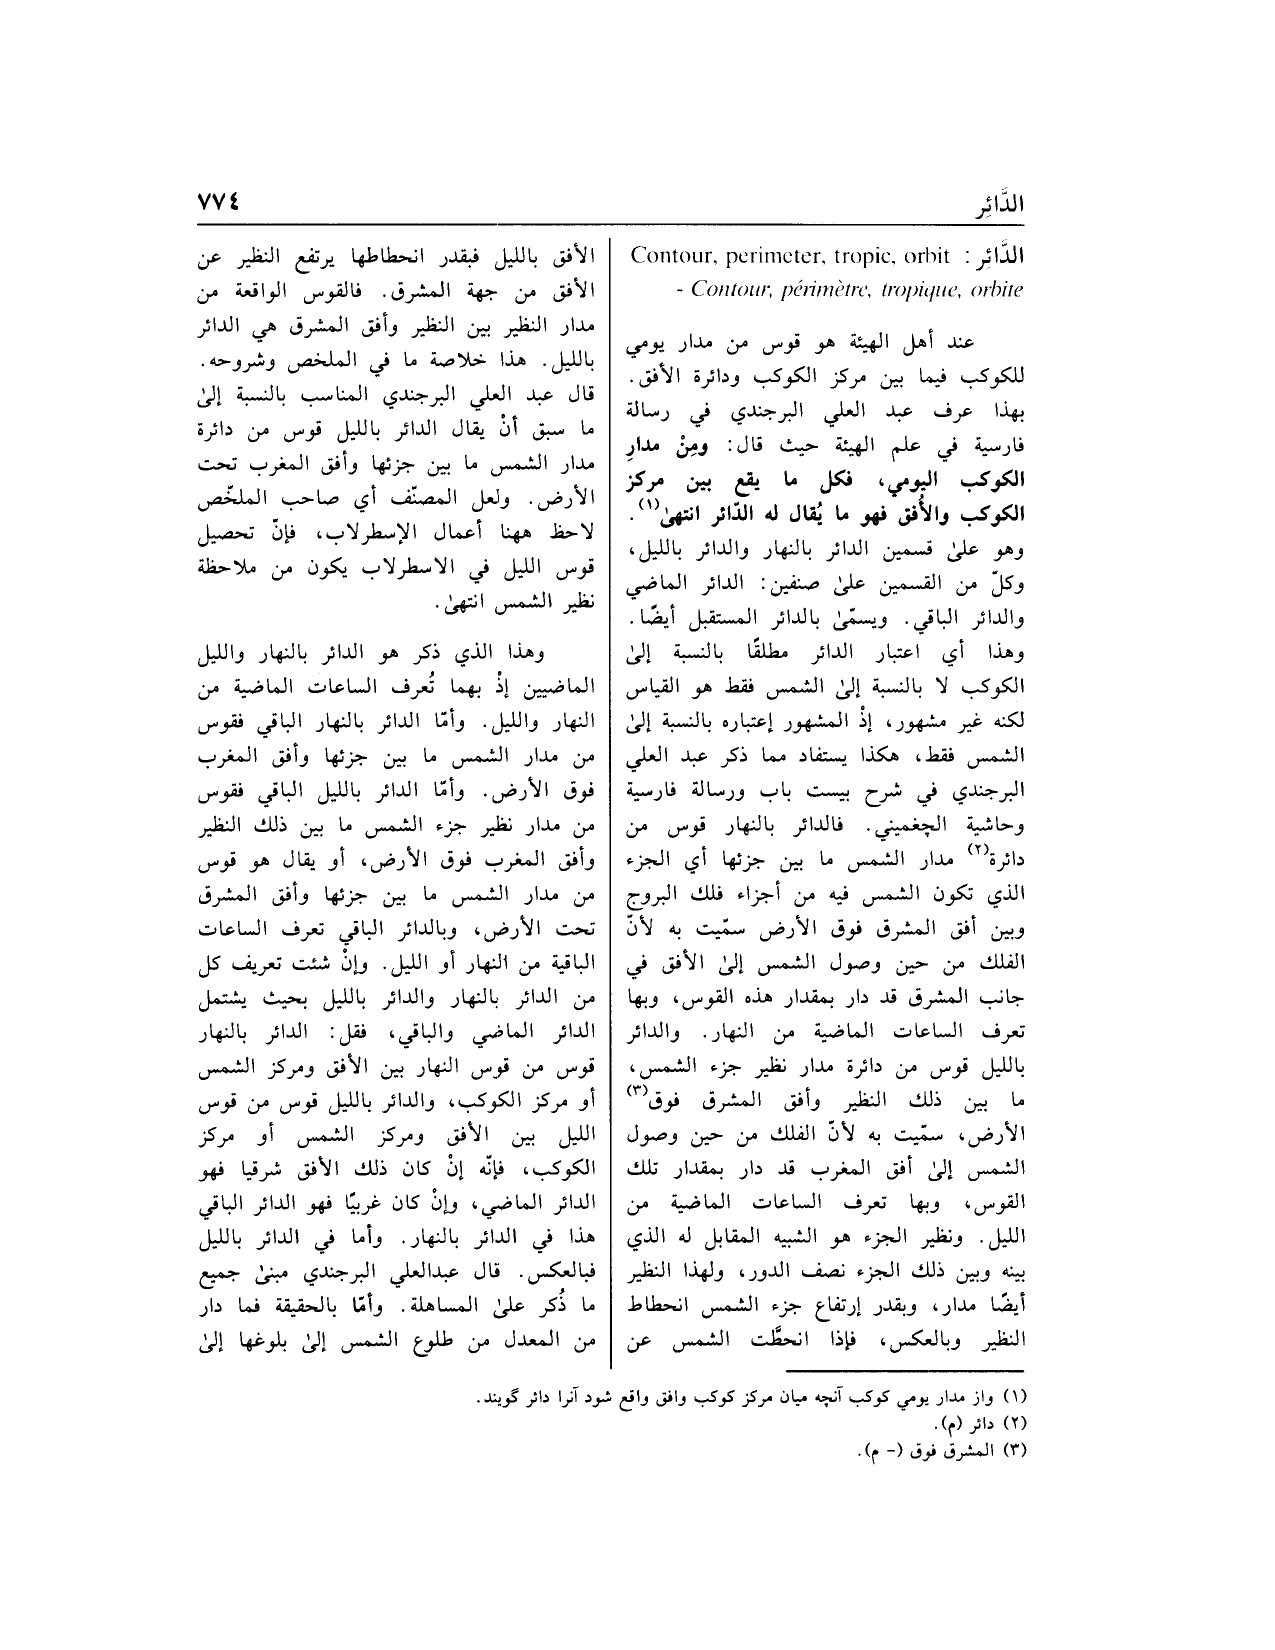 الدَّائِر
٧٧٤
الدَّائِر : Contour, perimeter, tropic, orbit
- Contour, périmètre, tropique, orbite
عند أهل الهيئة هو قوس من مدار يومي
للكوكب فيما بين مركز الكوكب ودائرة الأفق.
بهذا عرف عبد العلي البرجندي في رسالة
فارسية في علم الهيئة حيث قال: ومِنْ مدارِ
الكوكب اليومي، فكل ما يقع بين مركز
الكوكب والأُفق فهو ما يُقال له الدّائر انتهىٰ(١).
وهو علىٰ قسمين الدائر بالنهار والدائر بالليل،
وكلّ من القسمين علىٰ صنفين: الدائر الماضي
والدائر الباقي. ويسمّىٰ بالدائر المستقبل أيضًا.
وهذا أي اعتبار الدائر مطلقًا بالنسبة إلىٰ
الكوكب لا بالنسبة إلىٰ الشمس فقط هو القياس
لكنه غير مشهور، إذْ المشهور إعتباره بالنسبة إلىٰ
الشمس فقط، هكذا يستفاد مما ذكر عبد العلي
البرجندي في شرح بيست باب ورسالة فارسية
وحاشية الچغميني. فالدائر بالنهار قوس من
دائرة(٢) مدار الشمس ما بين جزئها أي الجزء
الذي تكون الشمس فيه من أجزاء فلك البروج
وبين أفق المشرق فوق الأرض سمّيت به لأنّ
الفلك من حين وصول الشمس إلىٰ الأفق في
جانب المشرق قد دار بمقدار هذه القوس، وبها
تعرف الساعات الماضية من النهار. والدائر
بالليل قوس من دائرة مدار نظير جزء الشمس،
ما بين ذلك النظير وأفق المشرق فوق(٣)
الأرض، سمّيت به لأنّ الفلك من حين وصول
الشمس إلىٰ أفق المغرب قد دار بمقدار تلك
القوس، وبها تعرف الساعات الماضية من
الليل. ونظير الجزء هو الشبيه المقابل له الذي
بينه وبين ذلك الجزء نصف الدور، ولهذا النظير
أيضًا مدار، وبقدر إرتفاع جزء الشمس انحطاط
النظير وبالعكس، فإذا انحطَّت الشمس عن
الأفق بالليل فبقدر انحطاطها يرتفع النظير عن
الأفق من جهة المشرق. فالقوس الواقعة من
مدار النظير بين النظير وأفق المشرق هي الدائر
بالليل. هذا خلاصة ما في الملخص وشروحه.
قال عبد العلي البرجندي المناسب بالنسبة إلىٰ
ما سبق أنْ يقال الدائر بالليل قوس من دائرة
مدار الشمس ما بين جزئها وأفق المغرب تحت
الأرض. ولعل المصنّف أي صاحب الملخّص
لاحظ ههنا أعمال الإسطرلاب، فإنّ تحصيل
قوس الليل في الاسطرلاب يكون من ملاحظة
نظير الشمس انتهىٰ.
وهذا الذي ذكر هو الدائر بالنهار والليل
الماضيين إذْ بهما تُعرف الساعات الماضية من
النهار والليل. وأمّا الدائر بالنهار الباقي فقوس
من مدار الشمس ما بين جزئها وأفق المغرب
فوق الأرض. وأمّا الدائر بالليل الباقي فقوس
من مدار نظير جزء الشمس ما بين ذلك النظير
وأفق المغرب فوق الأرض، أو يقال هو قوس
من مدار الشمس ما بين جزئها وأفق المشرق
تحت الأرض، وبالدائر الباقي تعرف الساعات
الباقية من النهار أو الليل. وإنْ شئت تعريف كل
من الدائر بالنهار والدائر بالليل بحيث يشتمل
الدائر الماضي والباقي، فقل: الدائر بالنهار
قوس من قوس النهار بين الأفق ومركز الشمس
أو مركز الكوكب، والدائر بالليل قوس من قوس
الليل بين الأفق ومركز الشمس أو مركز
الكوكب، فإنّه إنْ كان ذلك الأفق شرقيا فهو
الدائر الماضي، وإنْ كان غربيًا فهو الدائر الباقي
هذا في الدائر بالنهار. وأما في الدائر بالليل
فبالعكس. قال عبدالعلي البرجندي مبنىٰ جميع
ما ذُكر علىٰ المساهلة. وأمّا بالحقيقة فما دار
من المعدل من طلوع الشمس إلىٰ بلوغها إلىٰ
(١) واز مدار يومي كوكب آنچه ميان مركز كوكب وافق واقع شود آنرا دائر گويند.
(٢) دائر (م).
(٣) المشرق فوق (- م).